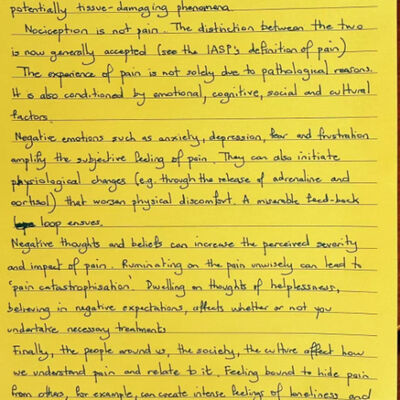 potentially tissue-damaging phenomena.
Nociception is not pain. The distinction between the two
is now generally accepted (see the IASP's definition of pain)
The experience of pain is not solely due to pathological reasons.
It is also conditioned by emotional, cognitive, social and cultural
factors.
Negative emotions such as anxiety, depression, fear and frustration
amplify the subjective feeling of pain. They can also initiate
physiological changes (e.g. through the release of adrenaline and
cortisol) that worsen physical discomfort. A miserable feed-back
loop ensues.
Negative thoughts and beliefs can increase the perceived severity
and impact of pain. Ruminating on the pain unwisely can lead to
'pain catastrophisation'. Dwelling on thoughts of helplessness,
believing in negative expectations, affects whether or not you
undertake necessary treatments.
Finally, the people around us, the society, the culture affect how
we understand pain and relate to it. Feeling bound to hide pain
from others, for example, can create intense feelings of loneliness and